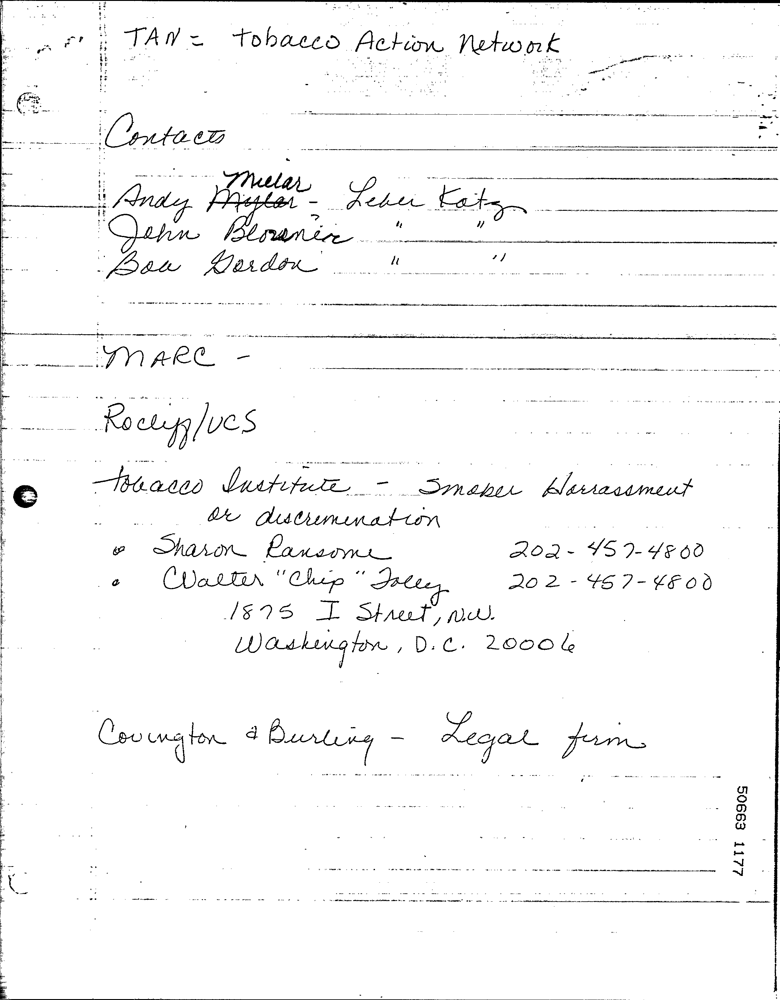 TAN = Tobacco Action Network
Contacts
Millar
Andy - Leber Katz
John " "
Gordon " "
MARC -
/VCS
Tobacco Institute - Smoker Harrassment
or discremination
• Sharon Ransome 202-457-4800
• Walter "Chip" Foley 202-457-4800
1875 I Street, N.W.
Washington, D.C. 20006
Covington & Burling - Legal firm
50663 1177